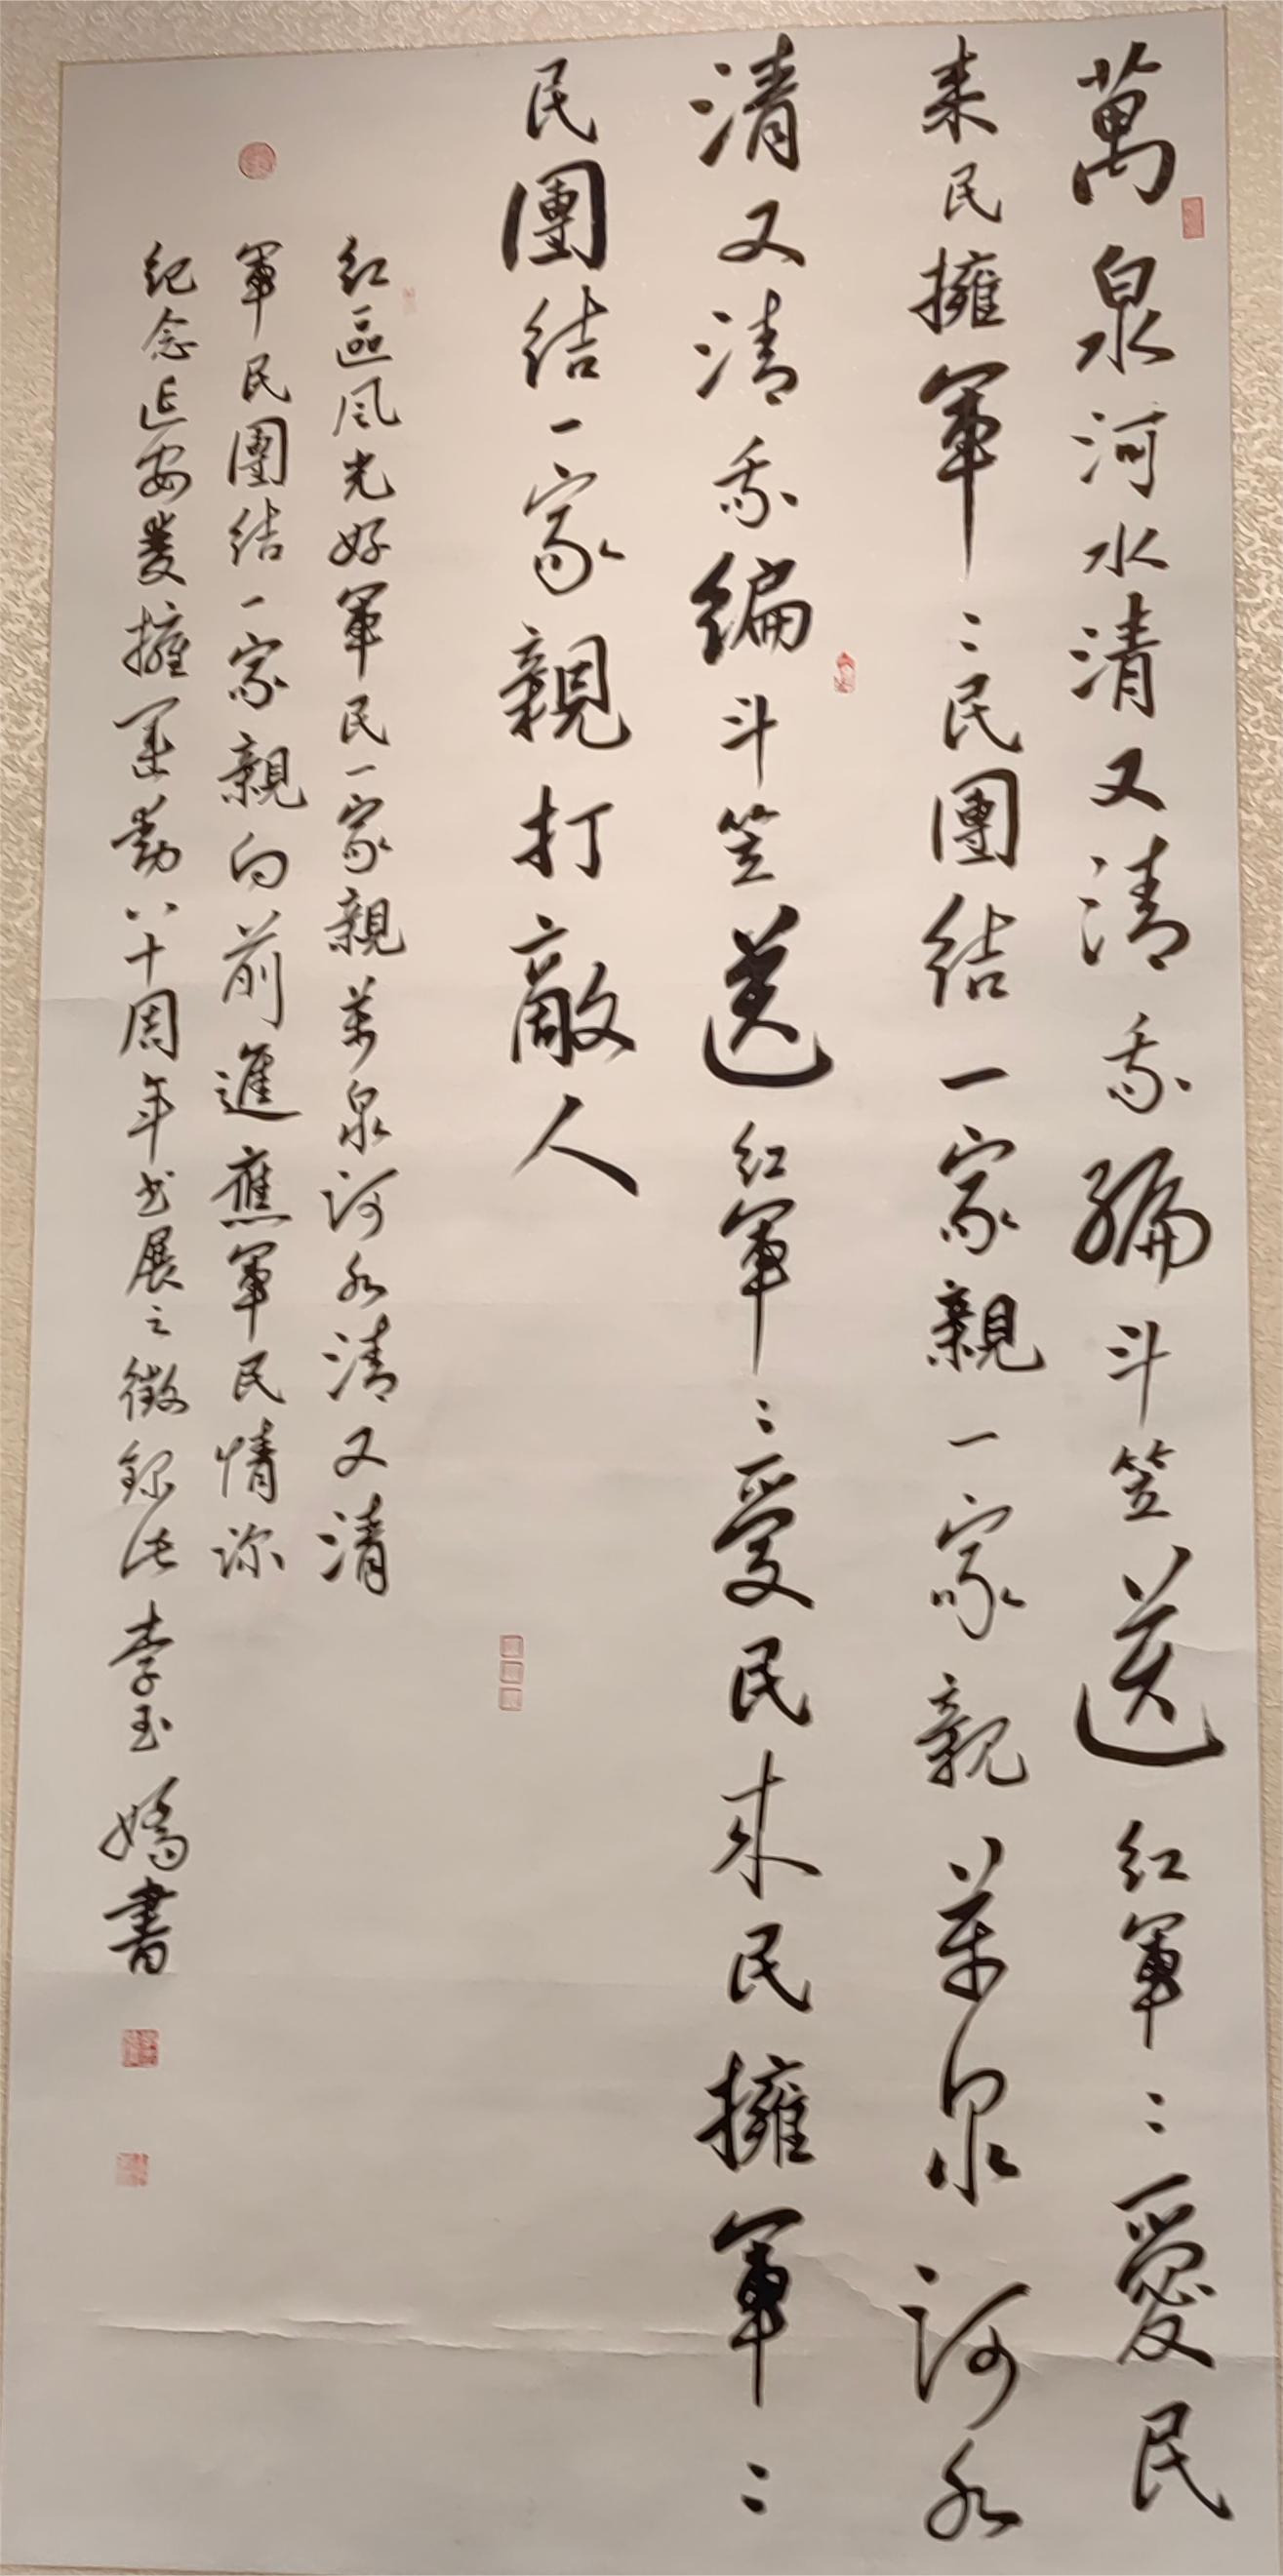 萬泉河水清又清我編斗笠送紅軍々愛民民
来民擁軍々民團結一家親一家親萬泉河水
清又清我編斗笠送紅軍々愛民来民擁軍々
民團結一家親打敵人
紅區風光好軍民一家親萬泉河水清又清
軍民團結一家親向前進應軍民情深
紀念延安雙擁運動八十周年书展之徵錄此李玉嬌書